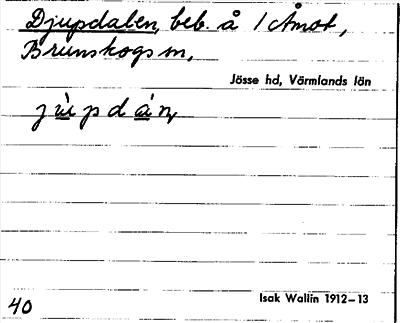 Djupdalen, beb. å 1 Åmot,
Brunskogs sn,
Jösse hd, Värmlands län
jùpdán
Isak Wallin 1912–13
40